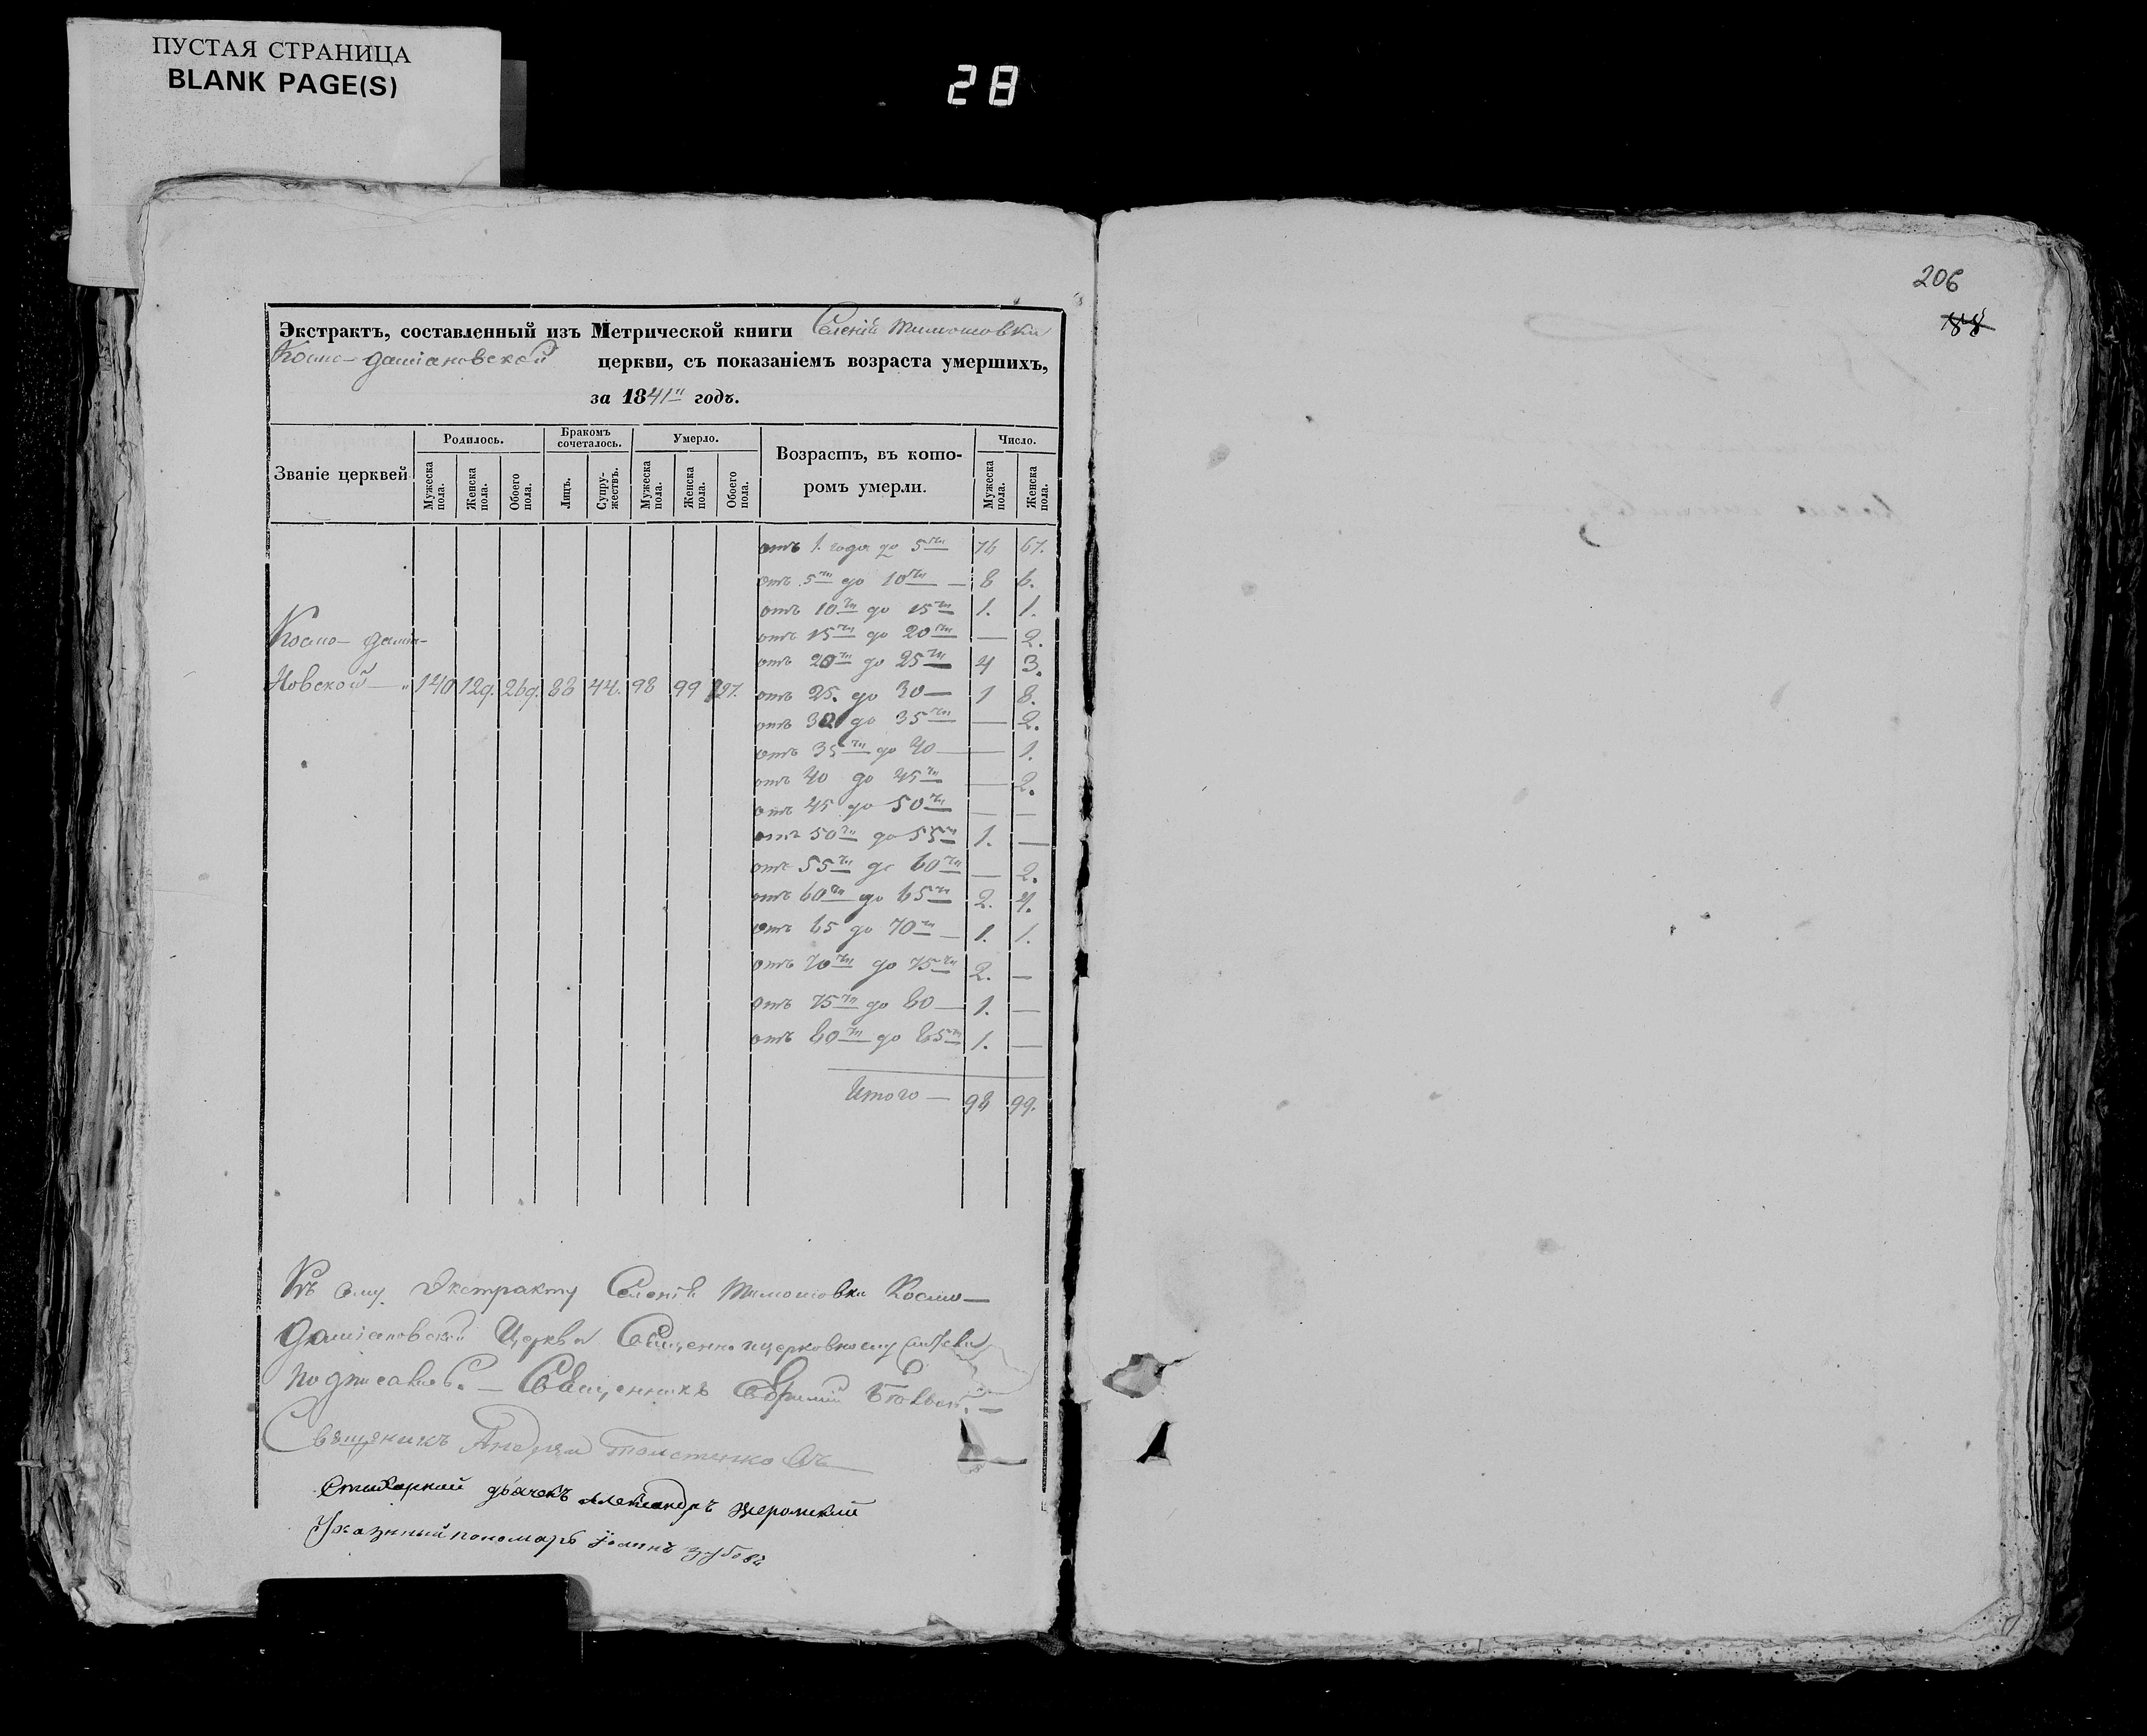 ПУСТАЯ СТРАНИЦА
BLANK PAGE(S)
28
206
Экстрактъ, составленный изъ Метрической книги Селенія Тимошовки
Космо-даміановской церкви, съ показаніемъ возраста умершихъ,
за 1841й годъ.
Званіе церквей
Родилось.
Мужеска пола.
Женска пола.
Обоего пола.
Бракомъ сочеталось.
Лицъ.
Супружествъ.
Умерло.
Мужеска пола.
Женска пола.
Обоего пола.
Возрастъ, въ которомъ умерли.
Число.
Мужеска пола.
Женска пола.
отъ 1. года до 5ти 76 67.
отъ 5ти до 10ти — 8 6.
отъ 10ти до 15ти 1. 1.
отъ 15ти до 20ти — 2.
отъ 20ти до 25ти 4 3.
Космо-даміа-
новской — 140 129. 269. 88 44. 98 99
отъ 25. до 30 — 1 8.
отъ 30 до 35ти — 2.
отъ 35ти до 40 — — 1.
отъ 40 до 45ти — 2.
отъ 45 до 50ти — —
отъ 50ти до 55ти 1. —
отъ 55ти до 60ти — 2.
отъ 60ти до 65ти 2. 4.
отъ 65 до 70ти — 1. 1.
отъ 70ти до 75ти 2. —
отъ 75ти до 80 — 1. —
отъ 80ти до 85ти 1. —
Итого — 98 99.
Къ сему Экстракту Селенія Тимошовки Космо-
Даміановской Церкви Священноцерковнослужители
подписались. — Священникъ Евфимій
Священикъ Андрей Толстенковъ
Стихарный дьячекъ Александръ Жеромскій
Указный пономарь Іоаннъ Зубовъ